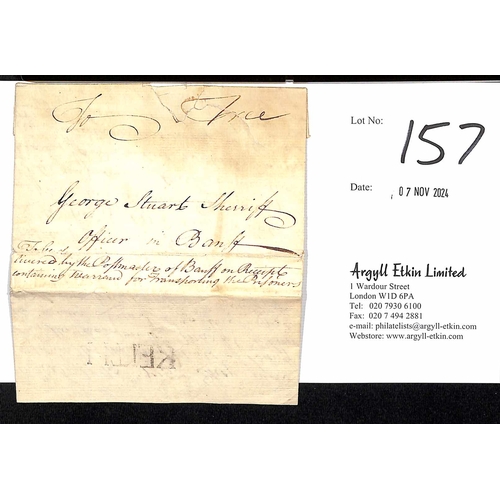 To Free
George Stuart Sherriff
Officer in Banff
To be de
livered by the Postmaster of Banff on Receipt
containing Warrand for Transporting the Prisoners
KEITH
Lot No: 157
Date: 07 NOV 2024
Argyll Etkin Limited
1 Wardour Street
London W1D 6PA
Tel: 020 7930 6100
Fax: 020 7 494 2881
e-mail: philatelists@argyll-etkin.com
Webstore: www.argyll-etkin.com